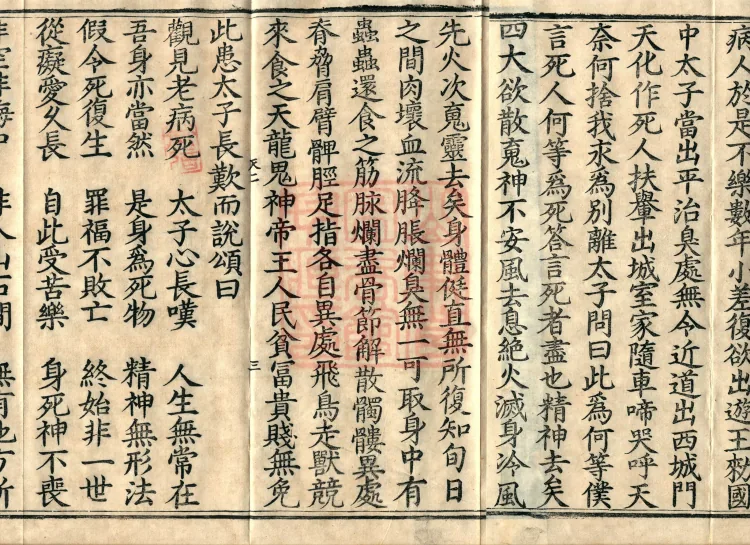 病人於是不樂數年小差復欲出遊王勑國
中太子當出平治臭處無令近道出西城門
天化作死人扶轝出城室家隨車啼哭呼天
奈何捨我求為別離太子問曰此為何等僕
言死人何等為死答言死者盡也精神去矣
四大欲散䰟神不安風去息絕火滅身冷風
先火次䰟靈去矣身體侹直無所復知旬日
之間肉壞血流膖脹爛臭無一可取身中有
蟲蟲還食之筋脉爛盡骨節解散髑髏異處
脊脅肩臂髀脛足指各自異處飛鳥走獸競
來食之天龍鬼神帝王人民貧富貴賤無免
天二 三
此患太子長歎而說頌曰
觀見老病死 太子心長嘆 人生無常在
吾身亦當然 是身為死物 精神無形法
假令死復生 罪福不敗亡 終始非一世
從癡愛久長 自此受苦樂 身死神不喪